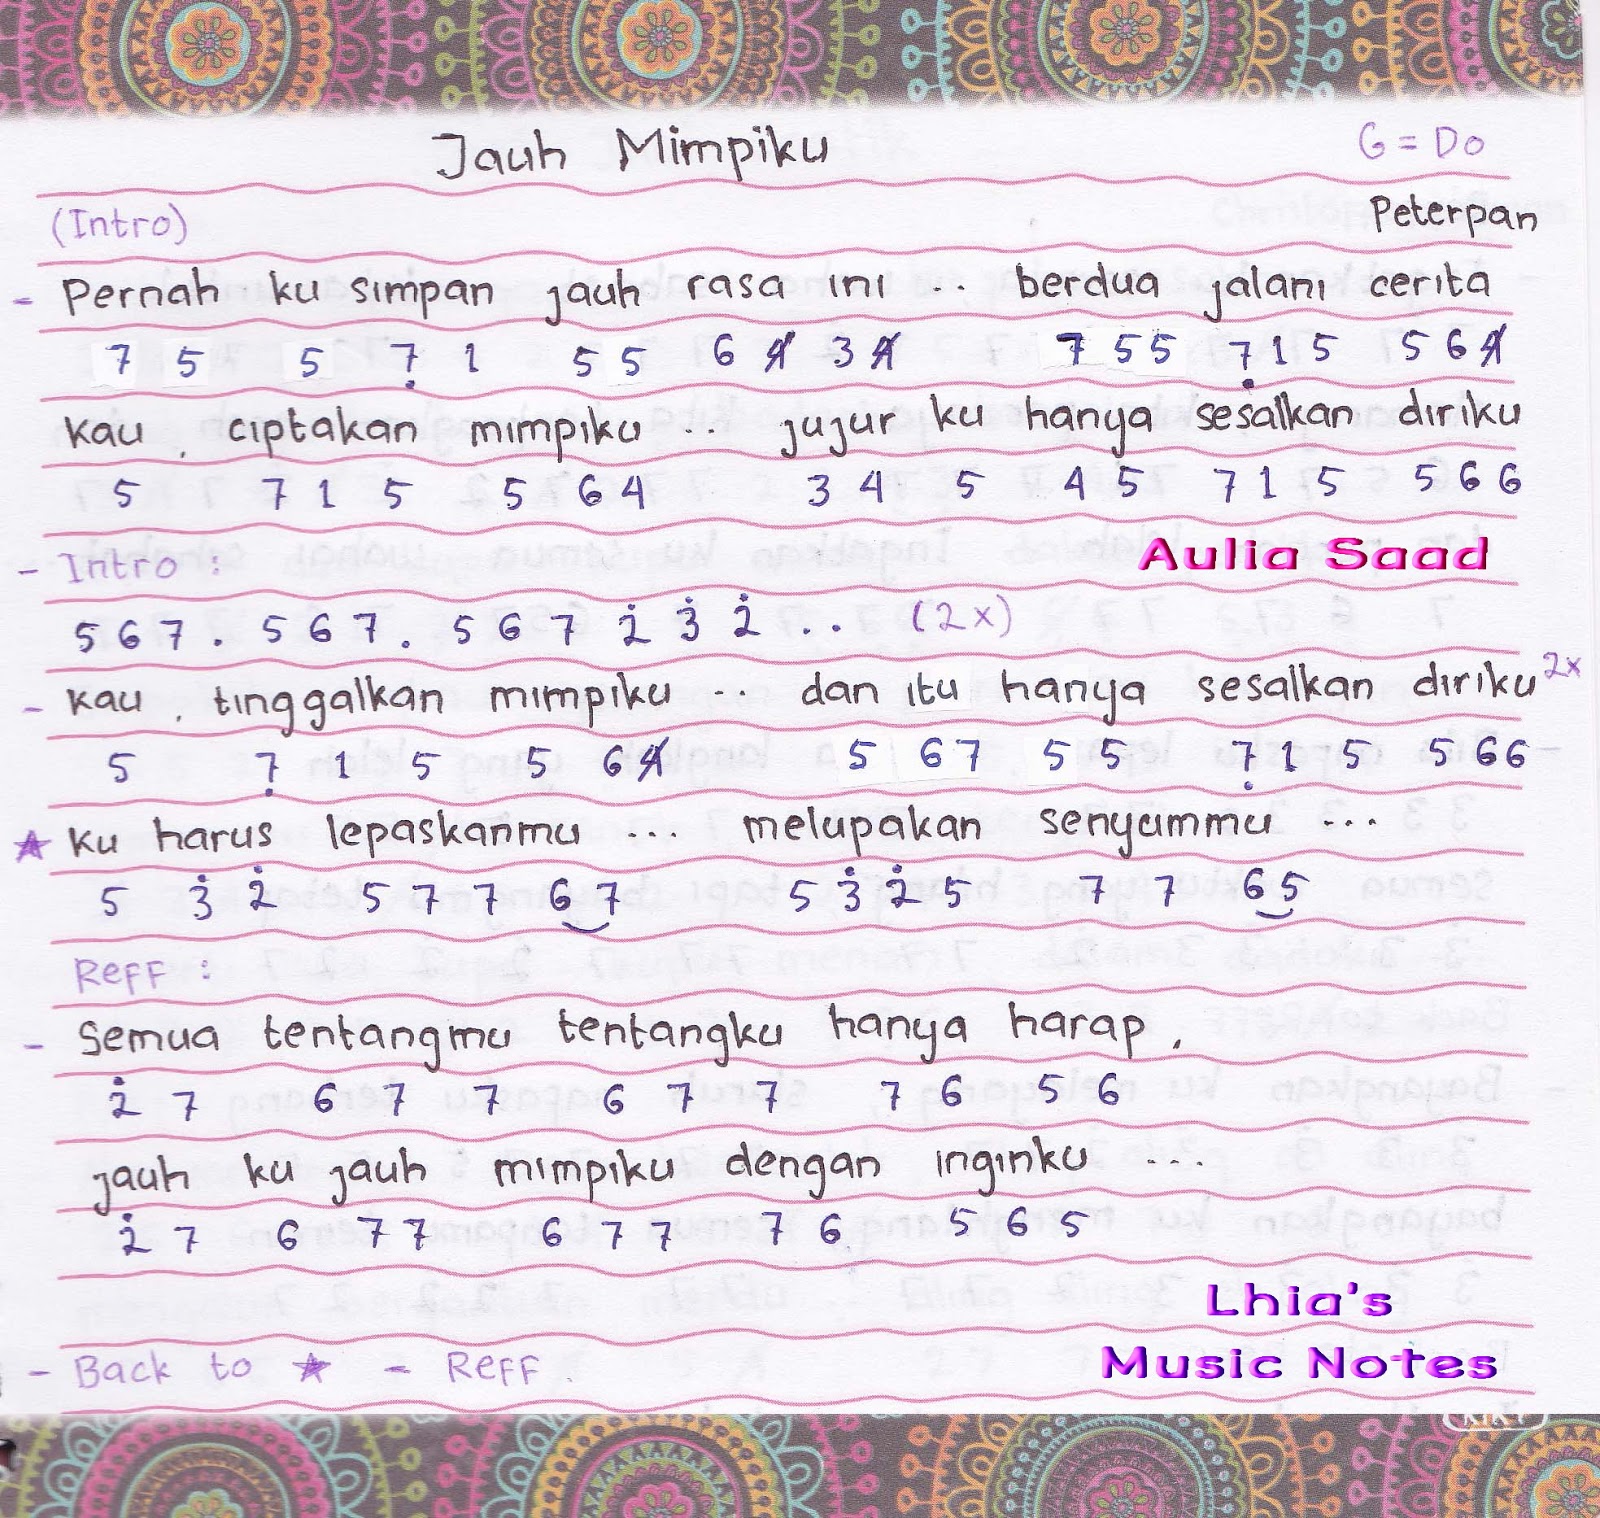 Jauh Mimpiku
G = Do
(Intro)
Peterpan
- Pernah ku simpan jauh rasa ini .. berdua jalani cerita
7 5 5 7̣ 1 5 5 6 4̸ 3 4̸ 7 5 5 7̣ 1 5 5 6 4̸
Kau, ciptakan mimpiku .. jujur ku hanya sesalkan diriku
5 7 1 5 5 6 4 3 4 5 4 5 7 1 5 5 6 6
- Intro :
Aulia Saad
5 6 7 . 5 6 7 . 5 6 7 2̇ 3̇ 2̇ . . (2x)
- Kau, tinggalkan mimpiku .. dan itu hanya sesalkan diriku 2x
5 7̣ 1 5 5 6 4̸ 5 6 7 5 5 7̣ 1 5 5 6 6
★ Ku harus lepaskanmu ... melupakan senyummu ...
5 3̇ 2̇ 5 7 7 6 7 5 3̇ 2̇ 5 7 7 6 5
Reff :
- Semua tentangmu tentangku hanya harap,
2̇ 7 6 7 7 6 7 7 7 6 5 6
jauh ku jauh mimpiku dengan inginku ...
2̇ 7 6 7 7 6 7 7 7 6 5 6 5
Lhia's
Music Notes
- Back to ★ - Reff.